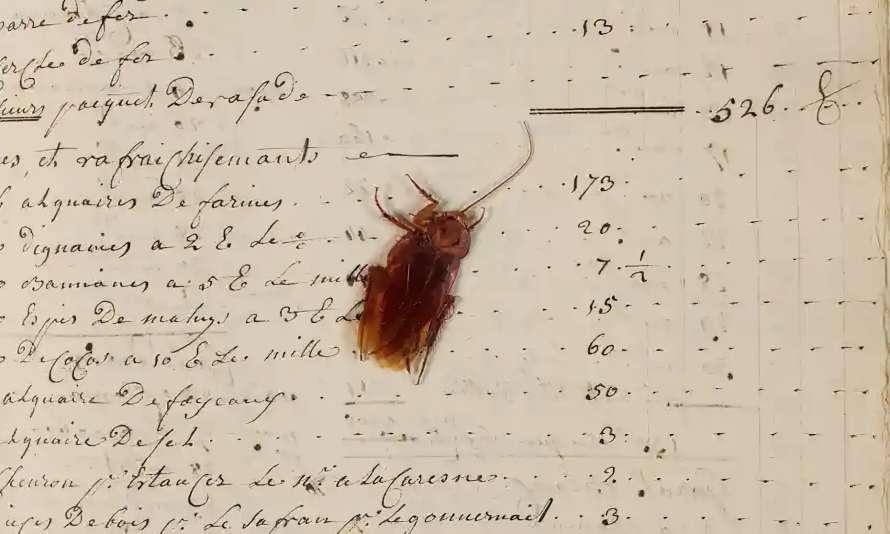 barre de fer 13
cercle de fer
pacquet De rasade 526. ₶
et rafraichisemants
alquaires De farines. 173
a 2 ₶ Le 20
Bannanes a 5 ₶ Le mille 7 1/2
Espis De mahys a 3 ₶ Le 15
De Cocos a 10 ₶ Le mille 60
alquaire De fayeaux 50
alquaire De sel 3
chevron pr Etançer Le nre a La Caresne 2
De bois pr Le safran pr Le gouvernail 3